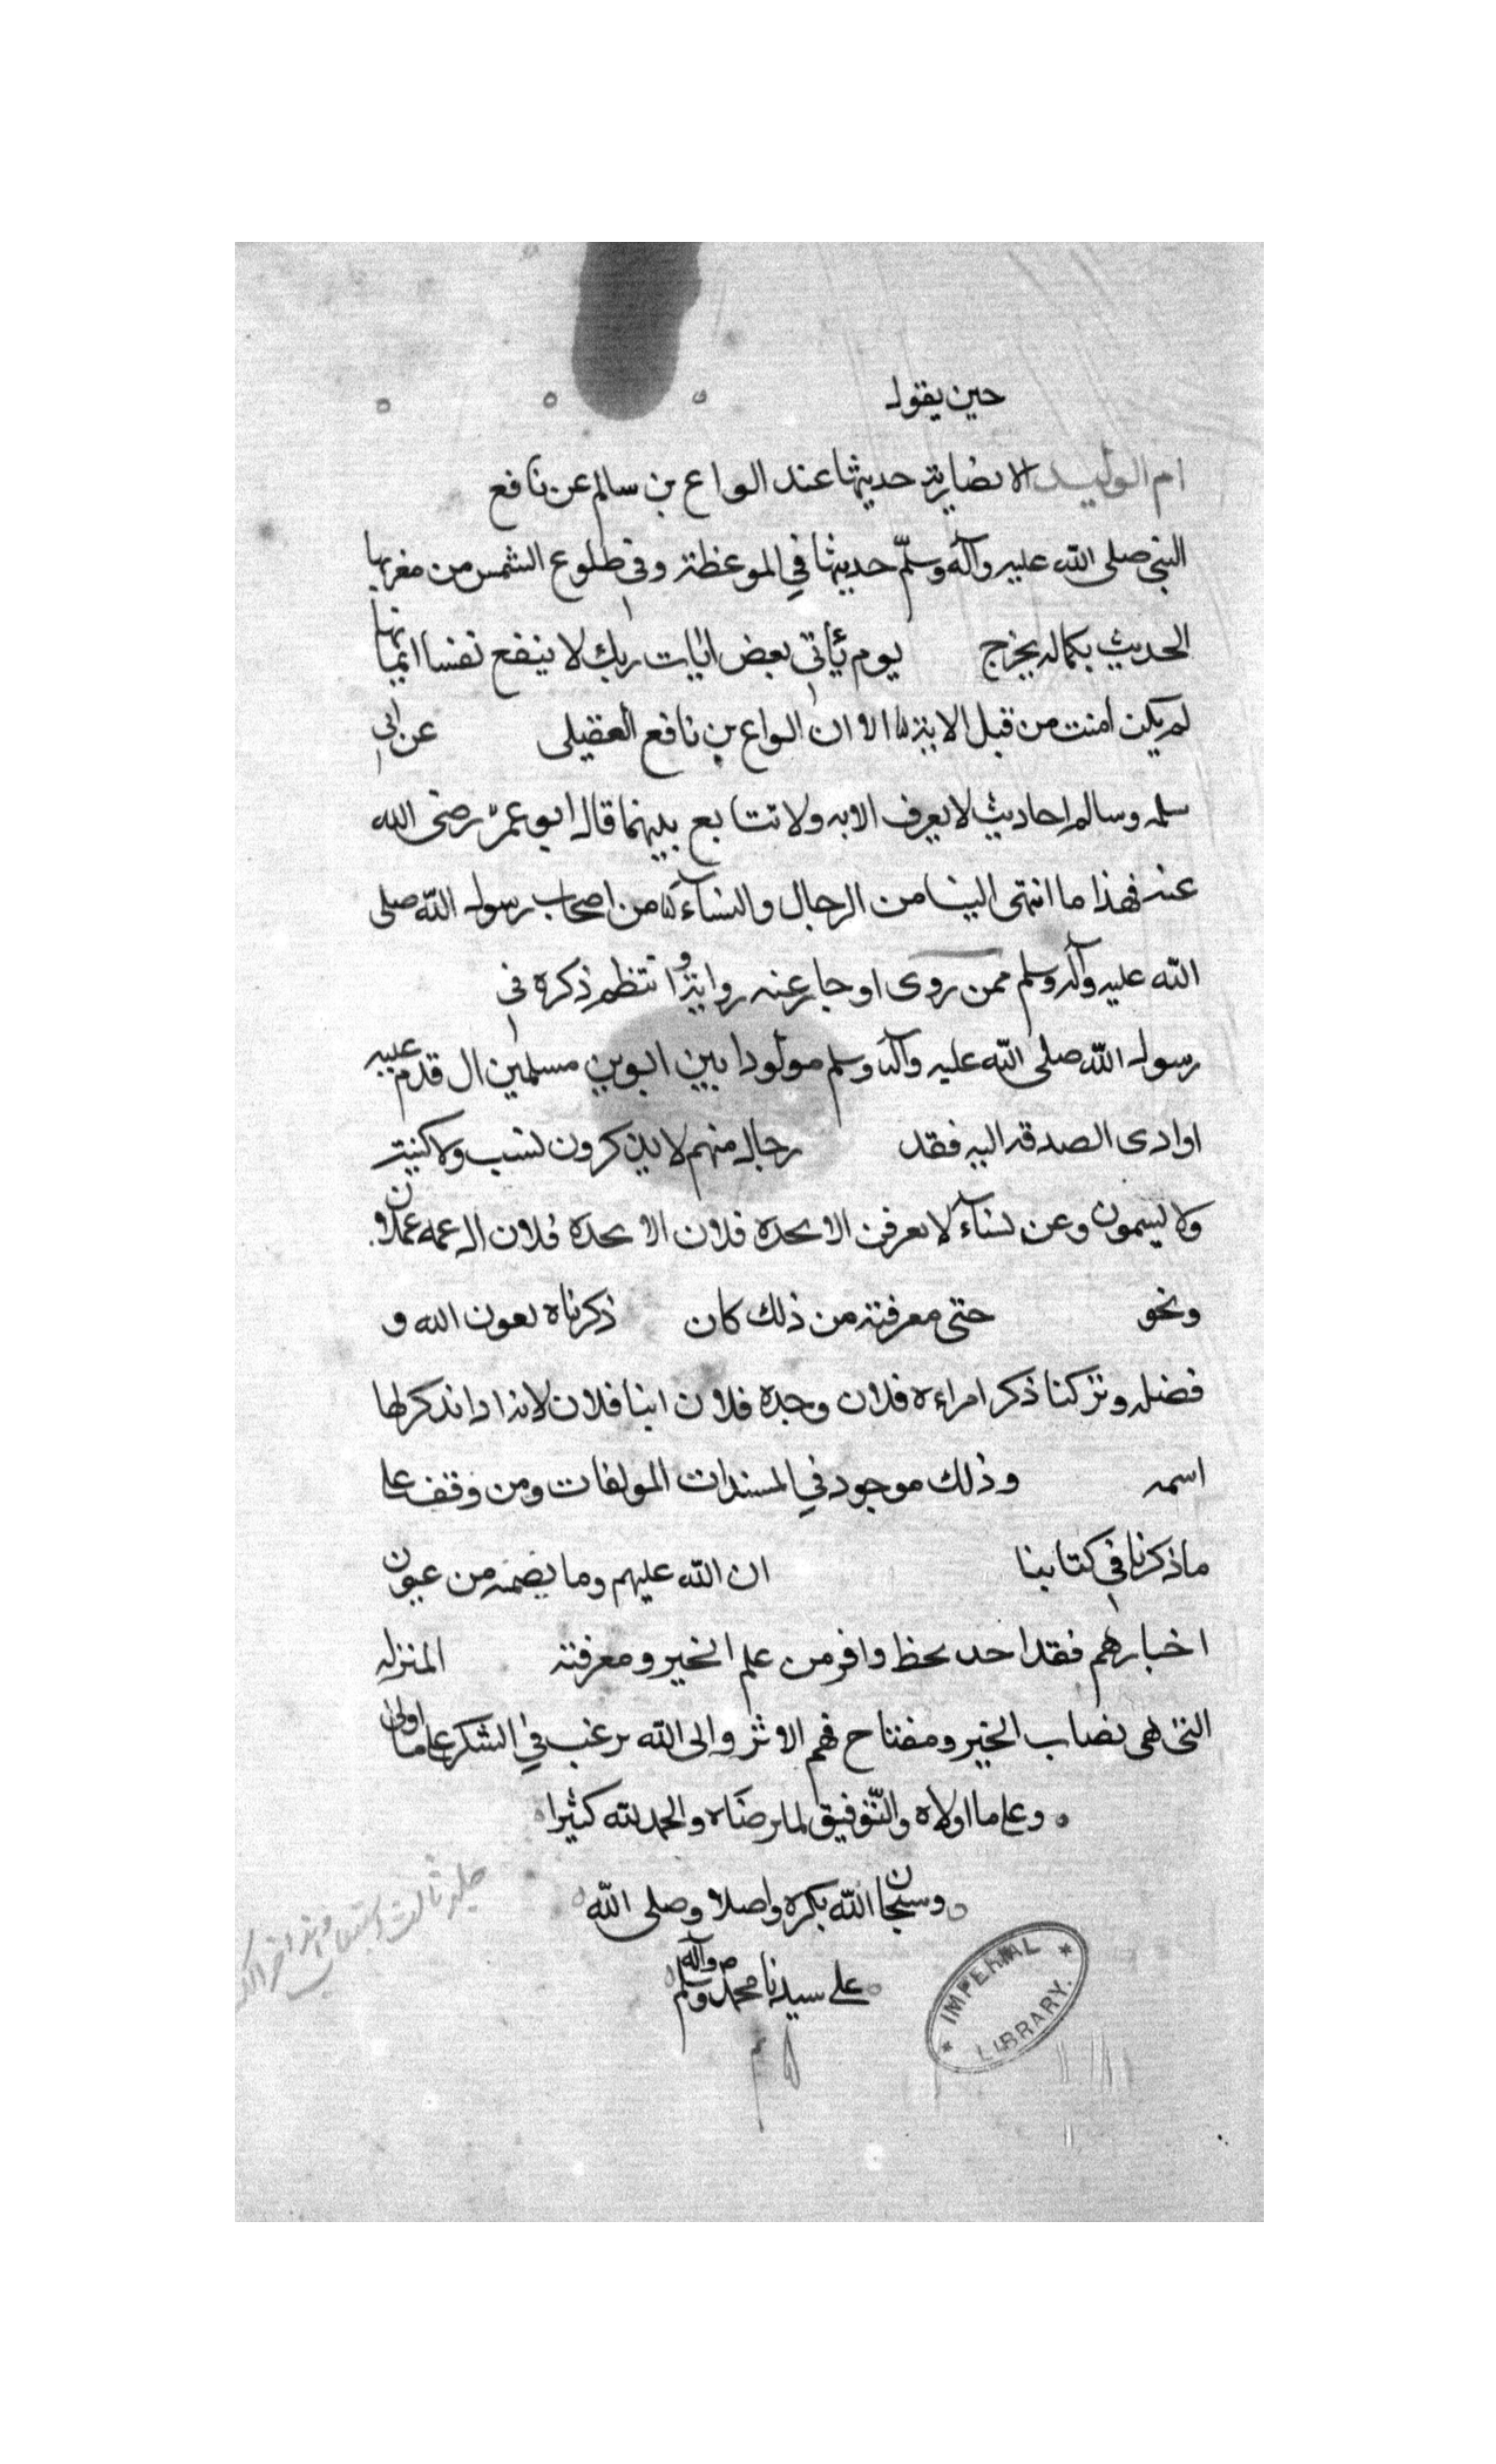 حين يقول
ام الوليد الانصارية حديثها عند الواع بن سالم عن نافع
النبي صلى الله عليه وآله وسلّم حديثها في الموعظة وفي طلوع الشمس من مغربها
الحديث بكماله يخرج يوم يأتي بعض ايات ربك لا ينفع نفسا ايمانها
لم يكن امنت من قبل الاية الا ان الواع بن نافع العقيلى عن ابى
سلمه وسالم احاديث لا يعرف الابه ولا تتابع بينهما قال ابو عمر رضى الله
عنه فهذا ما انتهى الينا من الرجال والنسآء من اصحاب رسول الله صلى
الله عليه وآله وسلم ممن روى او جا عنه رواية وانتظم ذكره فى
رسول الله صلى الله عليه وآله وسلم مولودا بين ابوين مسلمين ال قدم عليه
او ادى الصدقه اليه فقد رجال منهم لا يذكرون لنسب ولا كنية
ولا يسمون وعن نسآء لا يعرفن الا بحده فلان الا بحده فلان ال عمه
ونحو حتى معرفته من ذلك كان ذكرناه بعون الله و
فضله وتركنا ذكر امراءه فلان وجده فلان ابنا فلان لانذا
اسمه وذلك موجود في المسندات المولفات ومن وقف على
ما ذكرنا في كتابنا ان الله عليهم وما يضمه من عيون
اخبارهم فقد احد بحظ وافر من علم الخير ومعرفته المنزله
التى هى نصاب الخير ومفتاح فهم الاثر والى الله يرغب في الشكر على ما اولى
وعلى ما اولاه والتّوفيق لما يرضاه والحمد لله كثيرا
وسبحان الله بكره واصلا وصلى الله
على سيدنا محمد وآله وسلم
IMPERIAL LIBRARY.
جلد ثالث